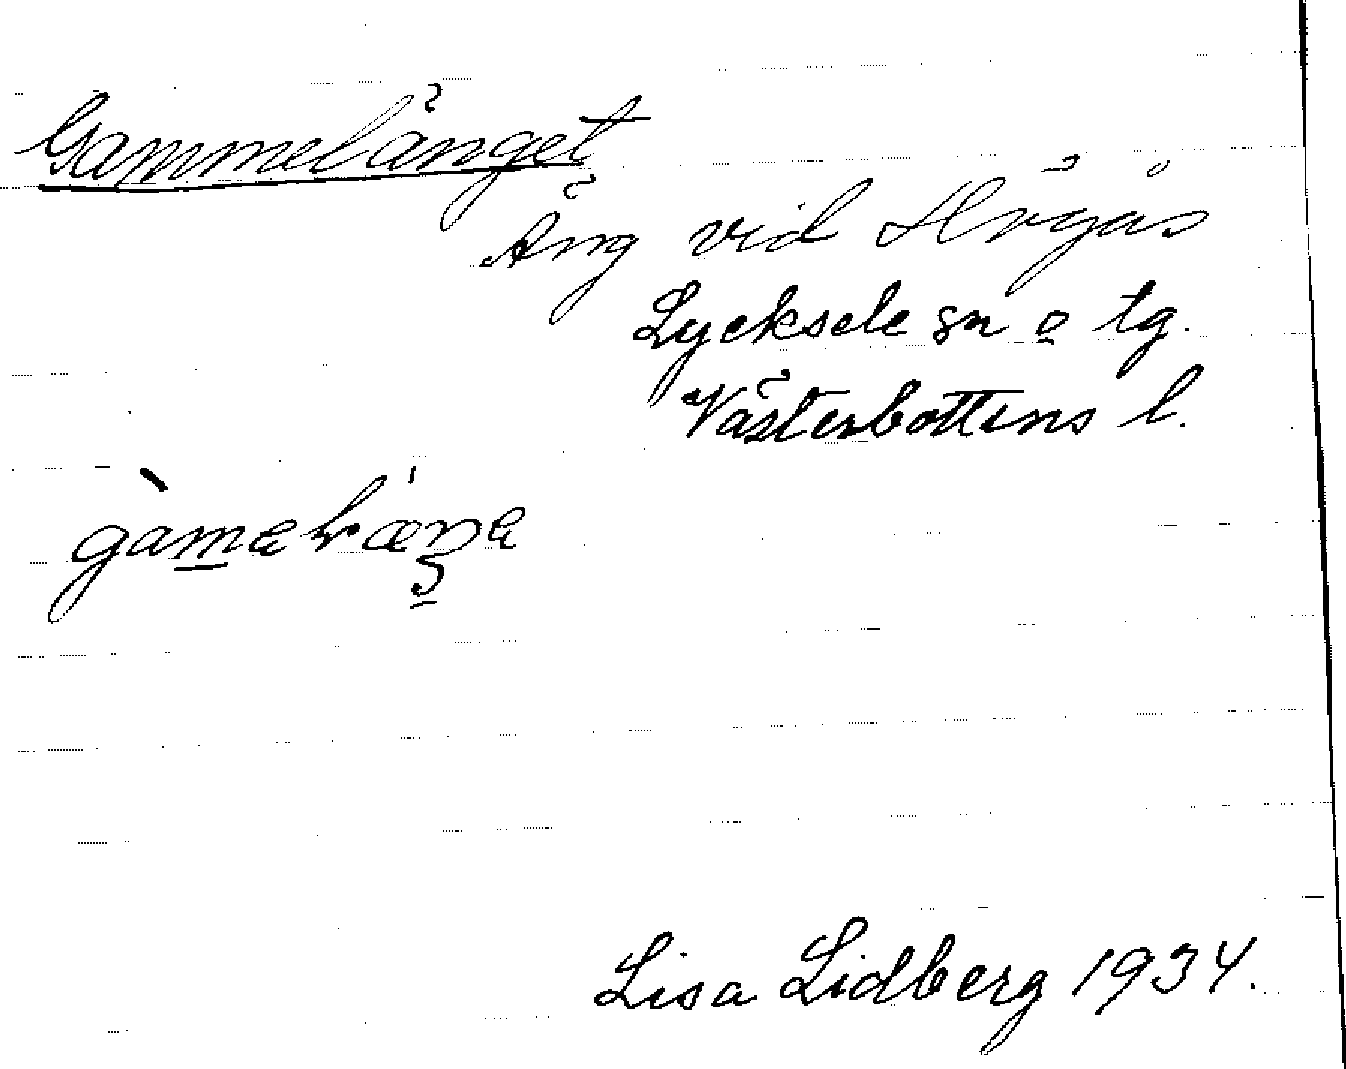 Gammelänget
Äng vid
Lycksele sn o tg.
Västerbottens l.
Lisa Lidberg 1934.